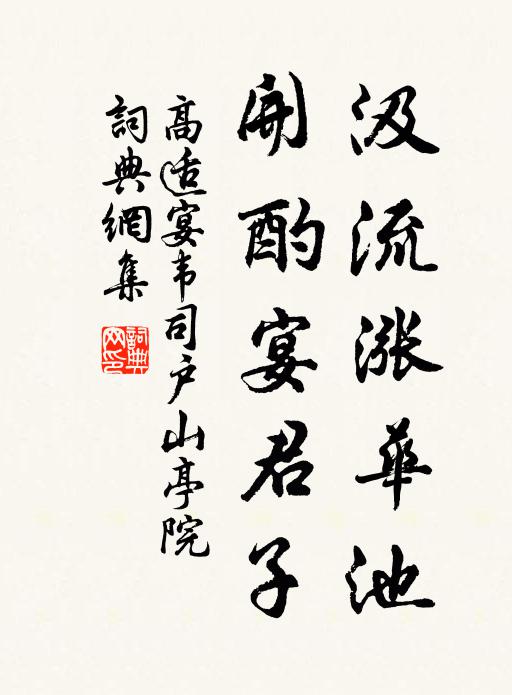 汲流漲華池
開酌宴君子
高适宴韦司户山亭院
詞典網集
詞典網印